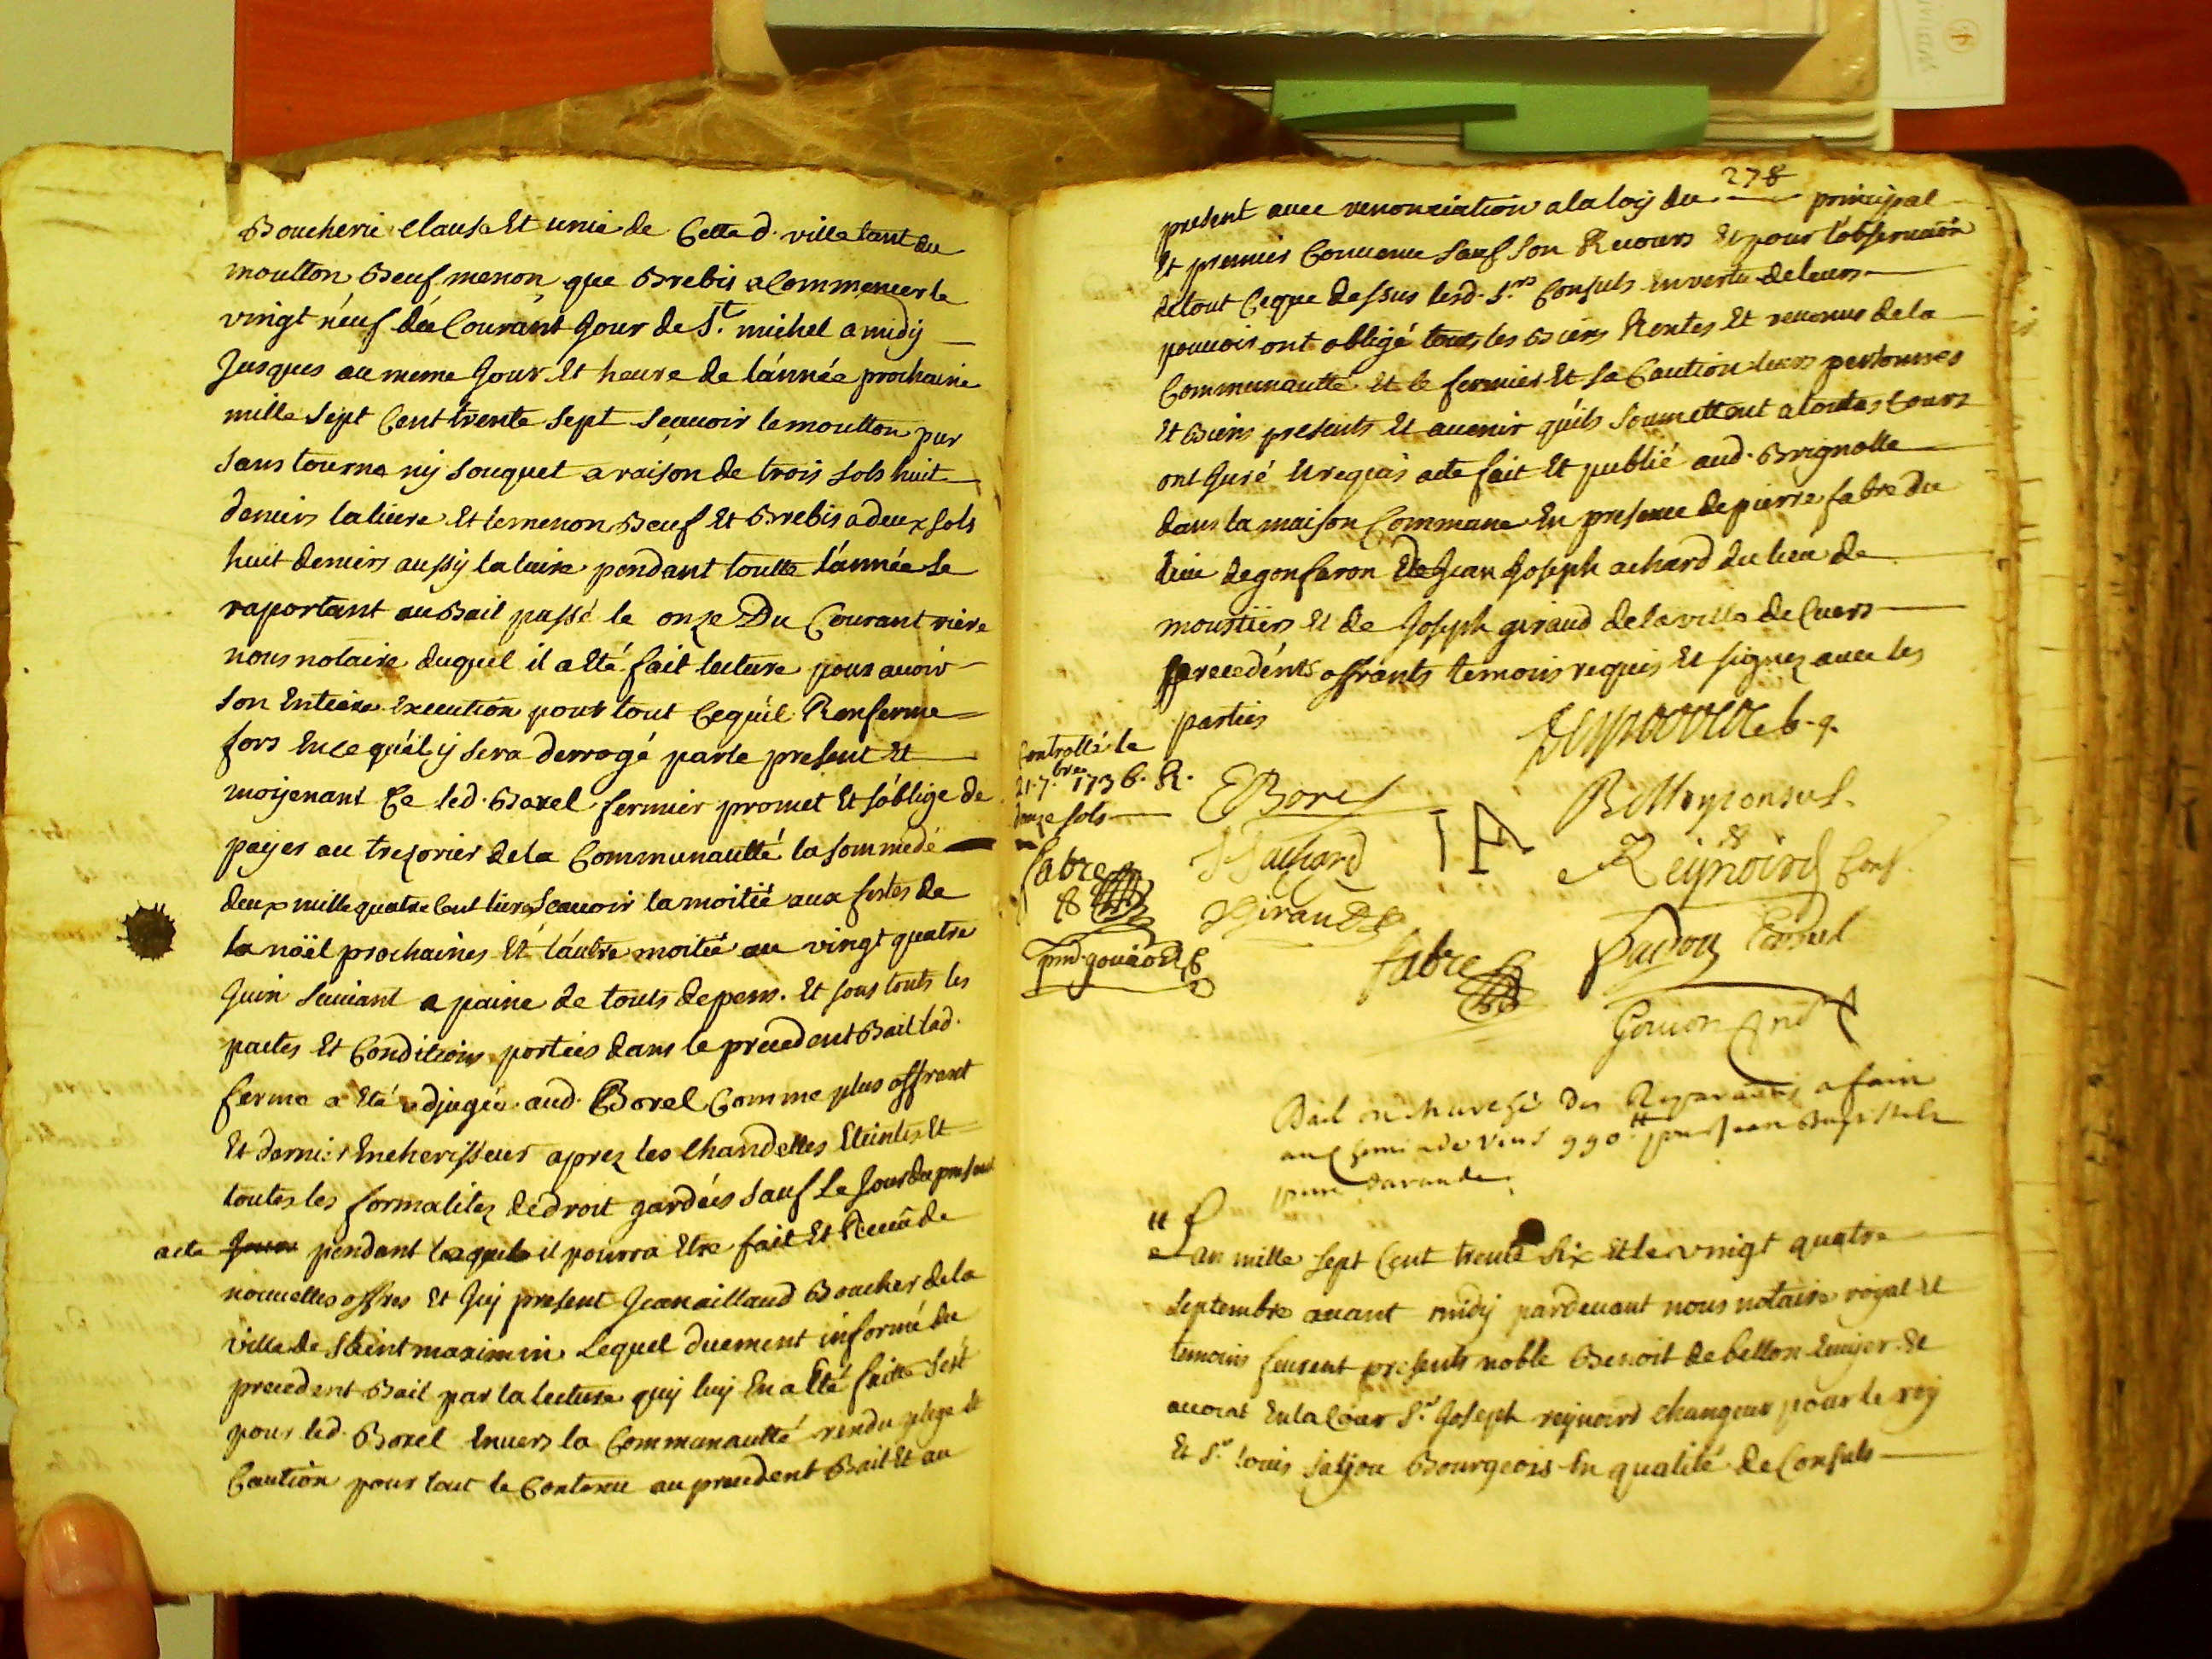 Boucherie clause Et unie de Cette d. ville tant du
moutton Beuf menon que Brebis a Commencer le
vingt neuf du Courant Jour de St. michel a midy
Jusques au meme Jour Et heure de l'année prochaine
mille sept Cent trente sept scauoir le moutton pur
sans tourne ny souquet a raison de trois sols huit
deniers la liure Et le menon Beuf Et Brebis a deux sols
huit deniers aussy la liure pendant toutte l'année se
raportant au Bail passé le onze Du Courant riere
nous notaire duquel il a Eté fait lecture pour auoir
son Entiere Execution pour tout Cequ'il Renferme
fors En ce qu'il y sera derrogé par le present Et
moyenant Ce led. Borel fermier promet Et s'oblige de
payer au trezorier de la Communautté la somme de
deux mille quatre Cent liures scauoir la moitié aux festes de
la noël prochaines Et l'autre moitié au vingt quatre
Juin suiuant a paine de touts depens. Et sous touts les
pactes Et Conditions portées dans le precedent Bail lad.
ferme a Eté adjugée aud. Borel Comme plus offrant
Et dernier Encherisseur aprez les Chandelles Eteintes Et
toutes les formalitez de droit gardées sauf Le Jour du present
acte pendant lequel il pourra Etre fait Et Receu de
nouuelles offres Et Icy present Jean aillaud Boucher de la
ville de Saint maximin Lequel duement informé du
precedent Bail par la lecture quy luy En a Eté faitte s'est
pour led. Borel Enuers la Communautté rendu plege Et
Caution pour tout le Contenu au precedent Bail Et au
278
present auec renonciation a la loy du principal
Et premier Conuenu sauf son Recours Et pour l'obseruaõn
de tout Ceque dessus lesd. Srs Consuls En vertu de leurs
pouuoir ont obligé touts les Biens Rentes Et reuenus de la
Communautté Et le fermier Et sa Caution leurs personnes
Et Biens presents Et auenir qu'ils soumettent a toutes Cours
ont Juré Et requis acte fait Et publié aud. Brignolle
dans la maison Commune En presence de pierre fabre du
lieu de gonfaron de Jean Joseph achard du lieu de
moustiers Et de Joseph giraud de la ville de Cuers
precedents offrants temoins requis Et signez auec les
parties
Controllé le
21. 7bre 1736. R.
douze sols
EBorel
Bellon Consul
Reynoird Cons.
JJachard
fabre
JGiraud
fabre
Gouion
Bail a
990tt
L'an mille sept Cent trente six Et le vingt quatre
septembre auant midy pardeuant nous notaire royal Et
temoins feurent presents noble Benoit de bellon Ecuyer Et
auocat En la Cour Sr. Joseph reynoird changeur pour le roy
Et Sr. louis Bourgeois En qualité de Consuls